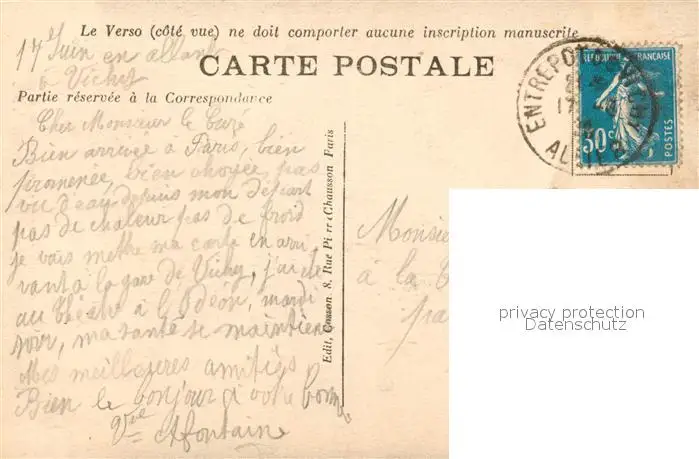 Le Verso (côté vue) ne doit comporter aucune inscription manuscrite
17 Juin en allant
à Vichy
CARTE POSTALE
Partie réservée à la Correspondance
Cher Monsieur le Curé
Bien arrivée à Paris, bien
promenée, bien choyée, pas
vu d'eau depuis mon départ
pas de chaleur pas de froid
je vais mettre ma carte en arri
vant à la gare de Vichy, j'ai été
au théâtre à l'Odéon, mardi
soir, ma santé se maintient
Mes meilleures amitiés
Bien le bonjour à votre bonne
Vve Afontaine
Edit. Cosson 8, Rue Pierre Chausson Paris
ENTREPOT
17
ALLIER
REPUBLIQUE FRANÇAISE
50c
POSTES
Monsie
à la C
pa
privacy protection
Datenschutz